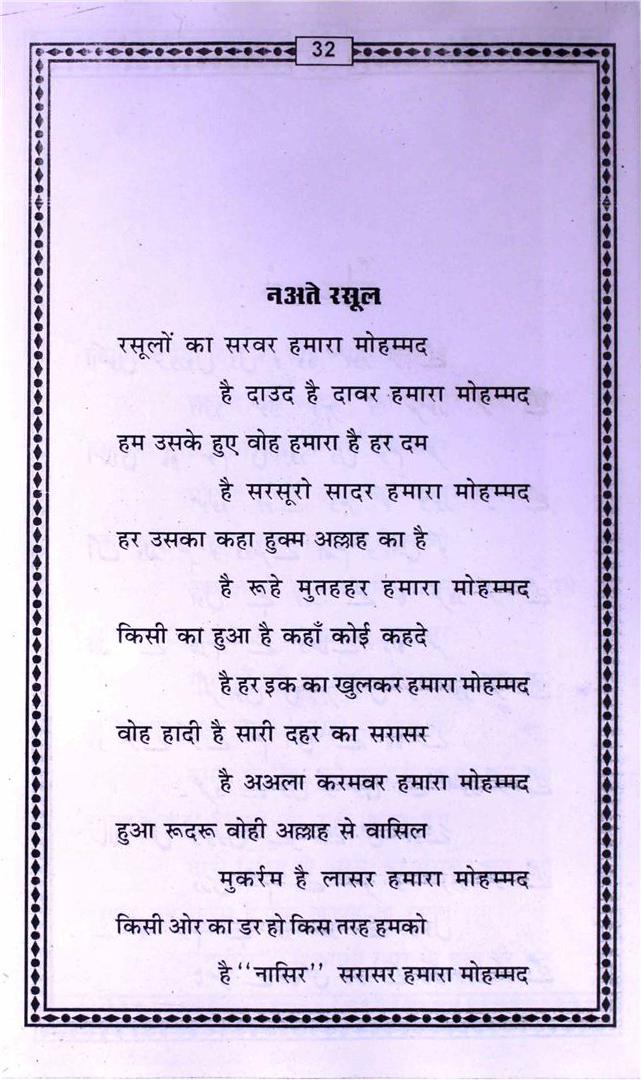 32
नअते रसूल
रसूलों का सरवर हमारा मोहम्मद
है दाउद है दावर हमारा मोहम्मद
हम उसके हुए वोह हमारा है हर दम
है सरसूरो सादर हमारा मोहम्मद
हर उसका कहा हुक्म अल्लाह का है
है रूहे मुतहहर हमारा मोहम्मद
किसी का हुआ है कहाँ कोई कहदे
है हर इक का खुलकर हमारा मोहम्मद
वोह हादी है सारी दहर का सरासर
है अअला करमवर हमारा मोहम्मद
हुआ रूदरू वोही अल्लाह से वासिल
मुकर्रम है लासर हमारा मोहम्मद
किसी ओर का डर हो किस तरह हमको
है ‘‘नासिर’’ सरासर हमारा मोहम्मद